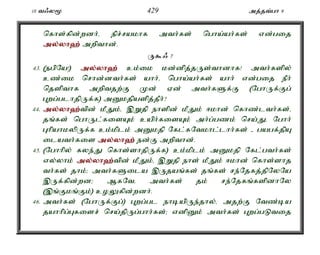 10 வஃலமூ 429 அத்தவ்பா 9
கொள்கின்றனர், நிச்சயமாக அவர்கள் பொய்யர்கள் என்பதை
அல்லாஹ் அறிவான்.
ருகூஃ 7
43. (நபியே!) அல்லாஹ் உம்மை மன்னித்தருள்வானாக! அவர்களில்
உண்மை சொன்னவர்கள் யார், பொய்யர்கள் யார் என்பதை நீர்
தெளிவாக அறிவதற்கு முன் ஏன் அவர்களுக்கு (போருக்குப்
புறப்படாதிருக்க) அனுமதியளித்தீர்?
44. அல்லாஹ்வின் மீதும், இறுதி நாளின் மீதும் ஈமான் கொண்டவர்கள்,
தங்கள் பொருட்களையும் உயிர்களையும் அர்ப்பணம் செய்து போர்
புரியாமலிருக்க உம்மிடம் அனுமதி கேட்கவேமாட்டார்கள் - பயபக்தியு
டையவர்களை அல்லாஹ் நன்கு அறிவான்.
45. (போரில் கலந்து கொள்ளாதிருக்க) உம்மிடம் அனுமதி கேட்பவர்கள்
எல்லாம் அல்லாஹ்வின் மீதும், இறுதி நாள் மீதும் ஈமான் கொள்ளாத
வர்கள் தாம்; அவர்களுடைய இருதயங்கள் தங்கள் சந்தேகத்திலேயே
இருக்கின்றன; ஆகவே, அவர்கள் தம் சந்தேகங்களினாலே
(இங்குமங்கும்) உழலுகின்றனர்.
46. அவர்கள் (போருக்குப்) புறப்பட நாடியிருந்தால், அதற்கு வேண்டிய
தயாரிப்புகளைச் செய்திருப்பார்கள்; எனினும் அவர்கள் புறப்படுவதை